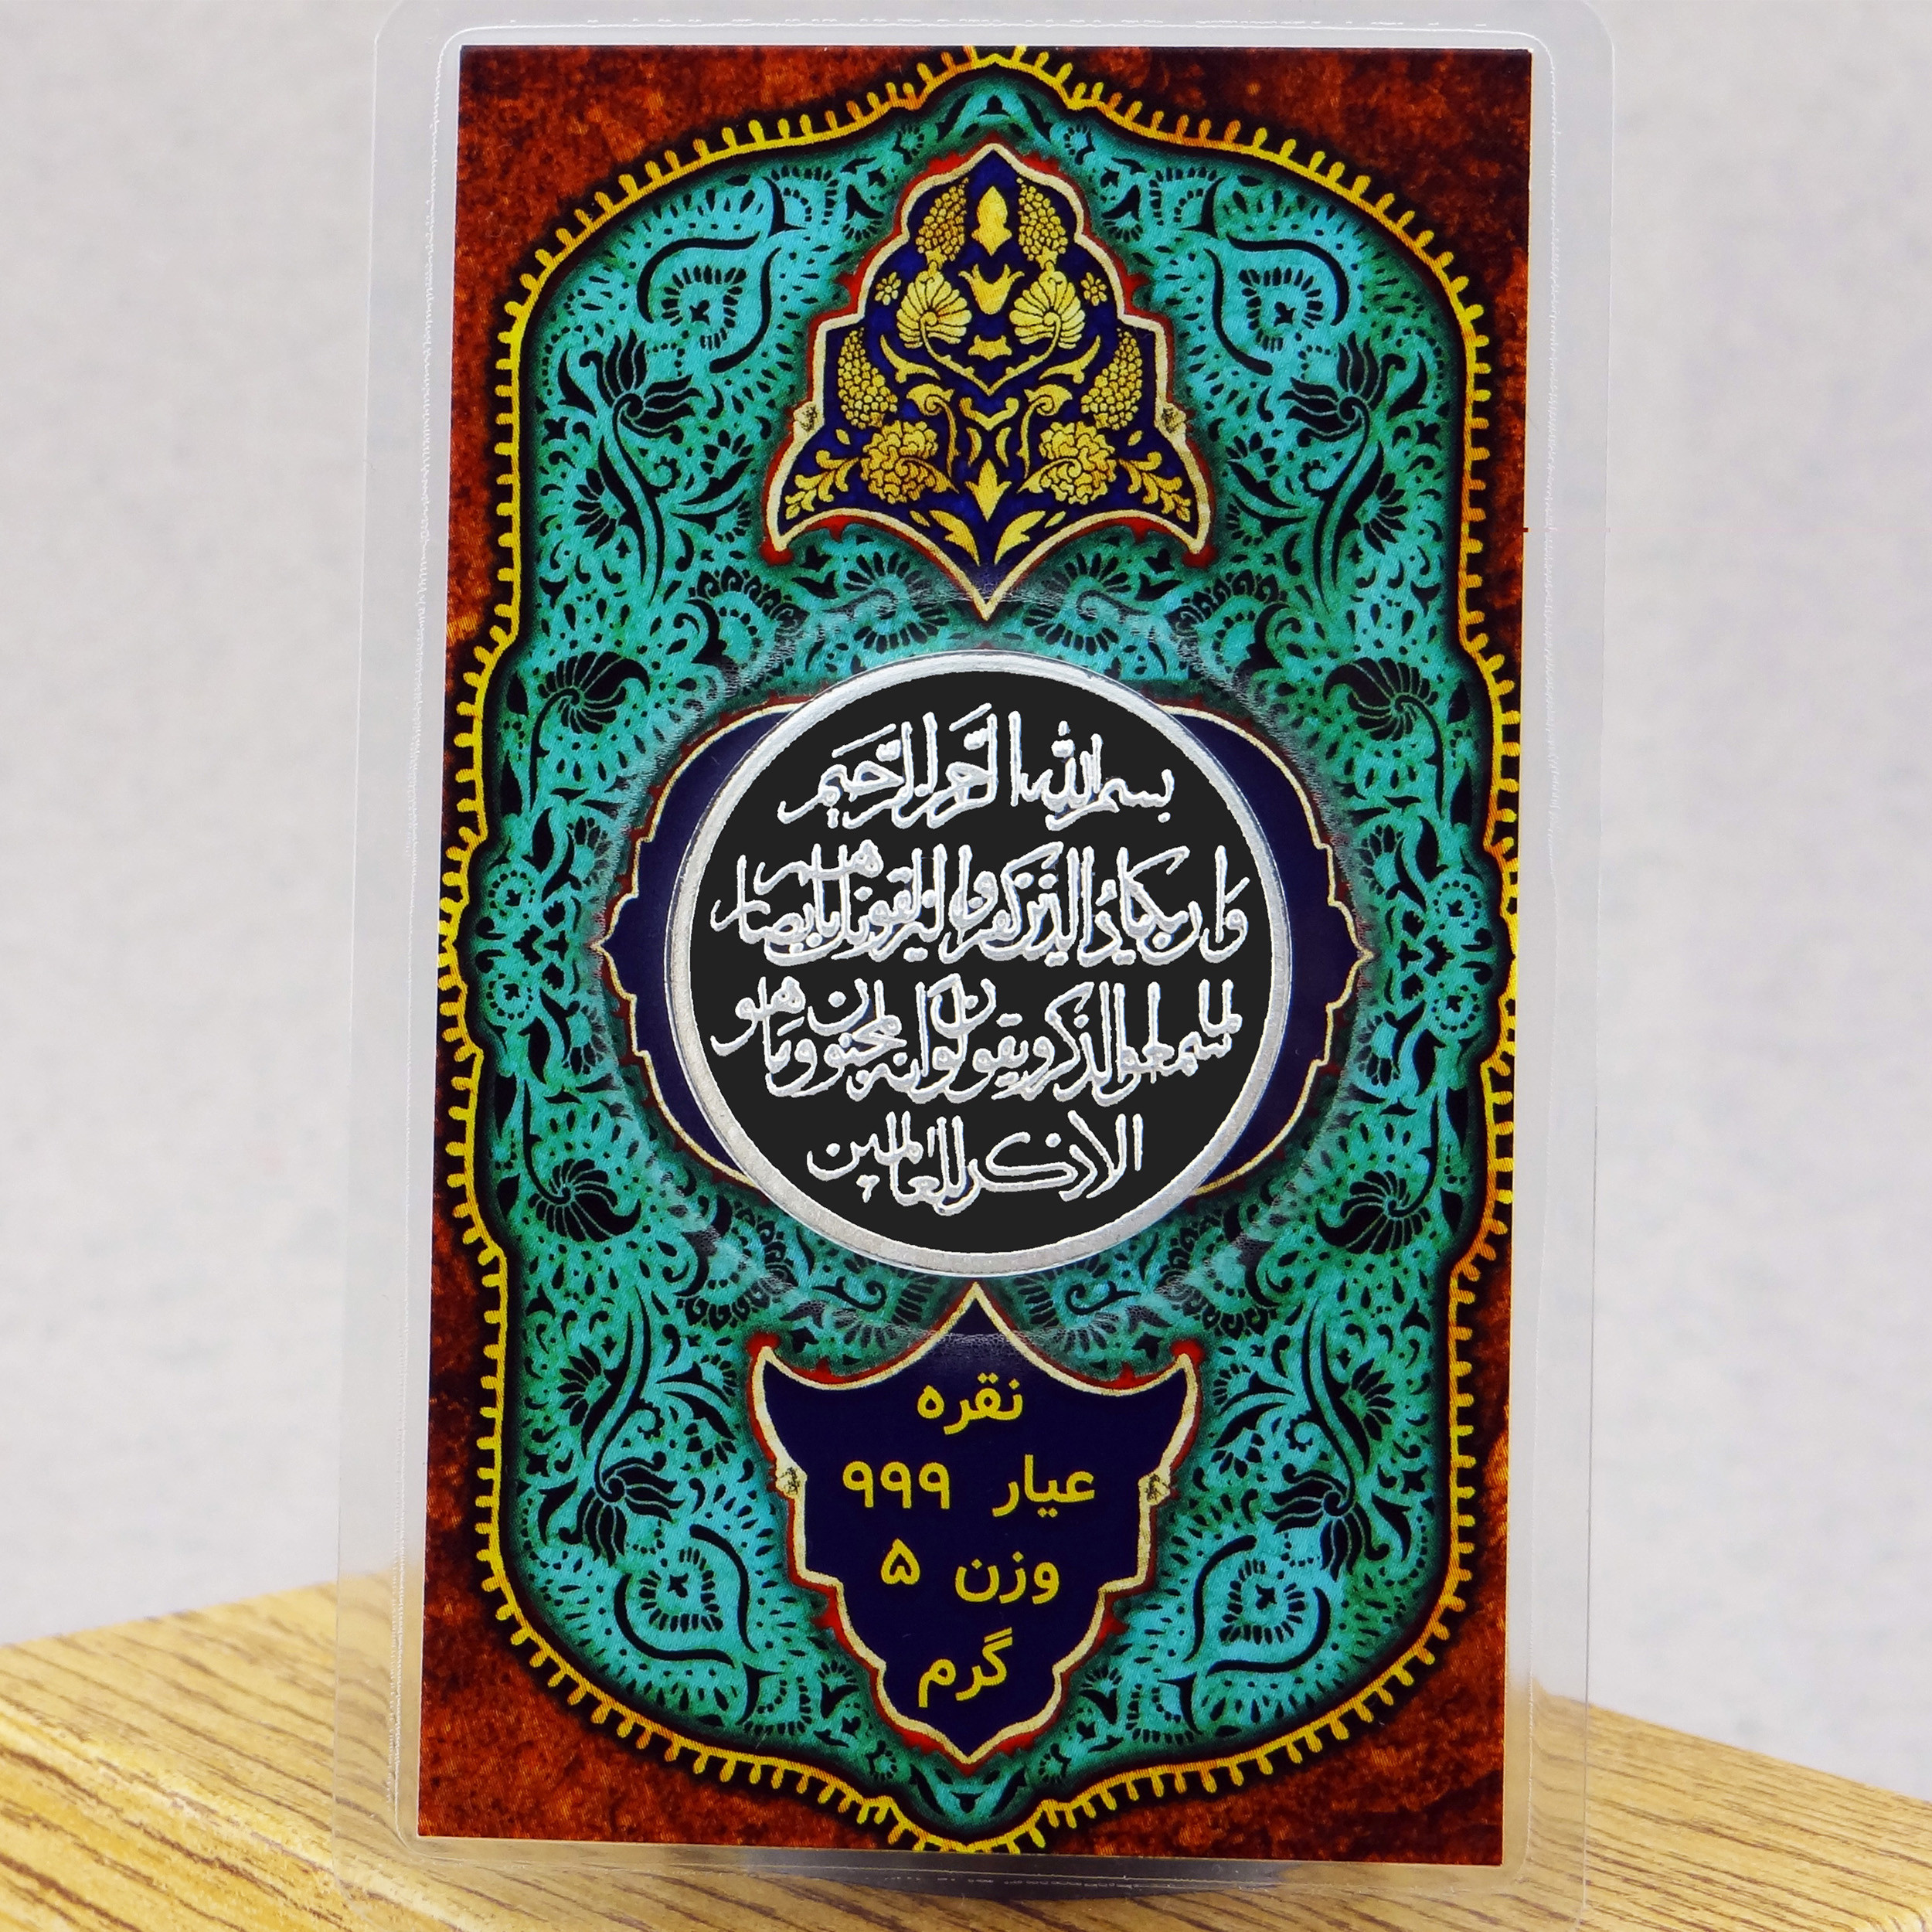 بسم الله الرحمن الرحيم
وان يكاد الذين كفروا ليزلقونك بابصارهم
لما سمعوا الذكر ويقولون انه لمجنون وما هو
الا ذكر للعالمين
نقره
عیار ۹۹۹
وزن ۵
گرم